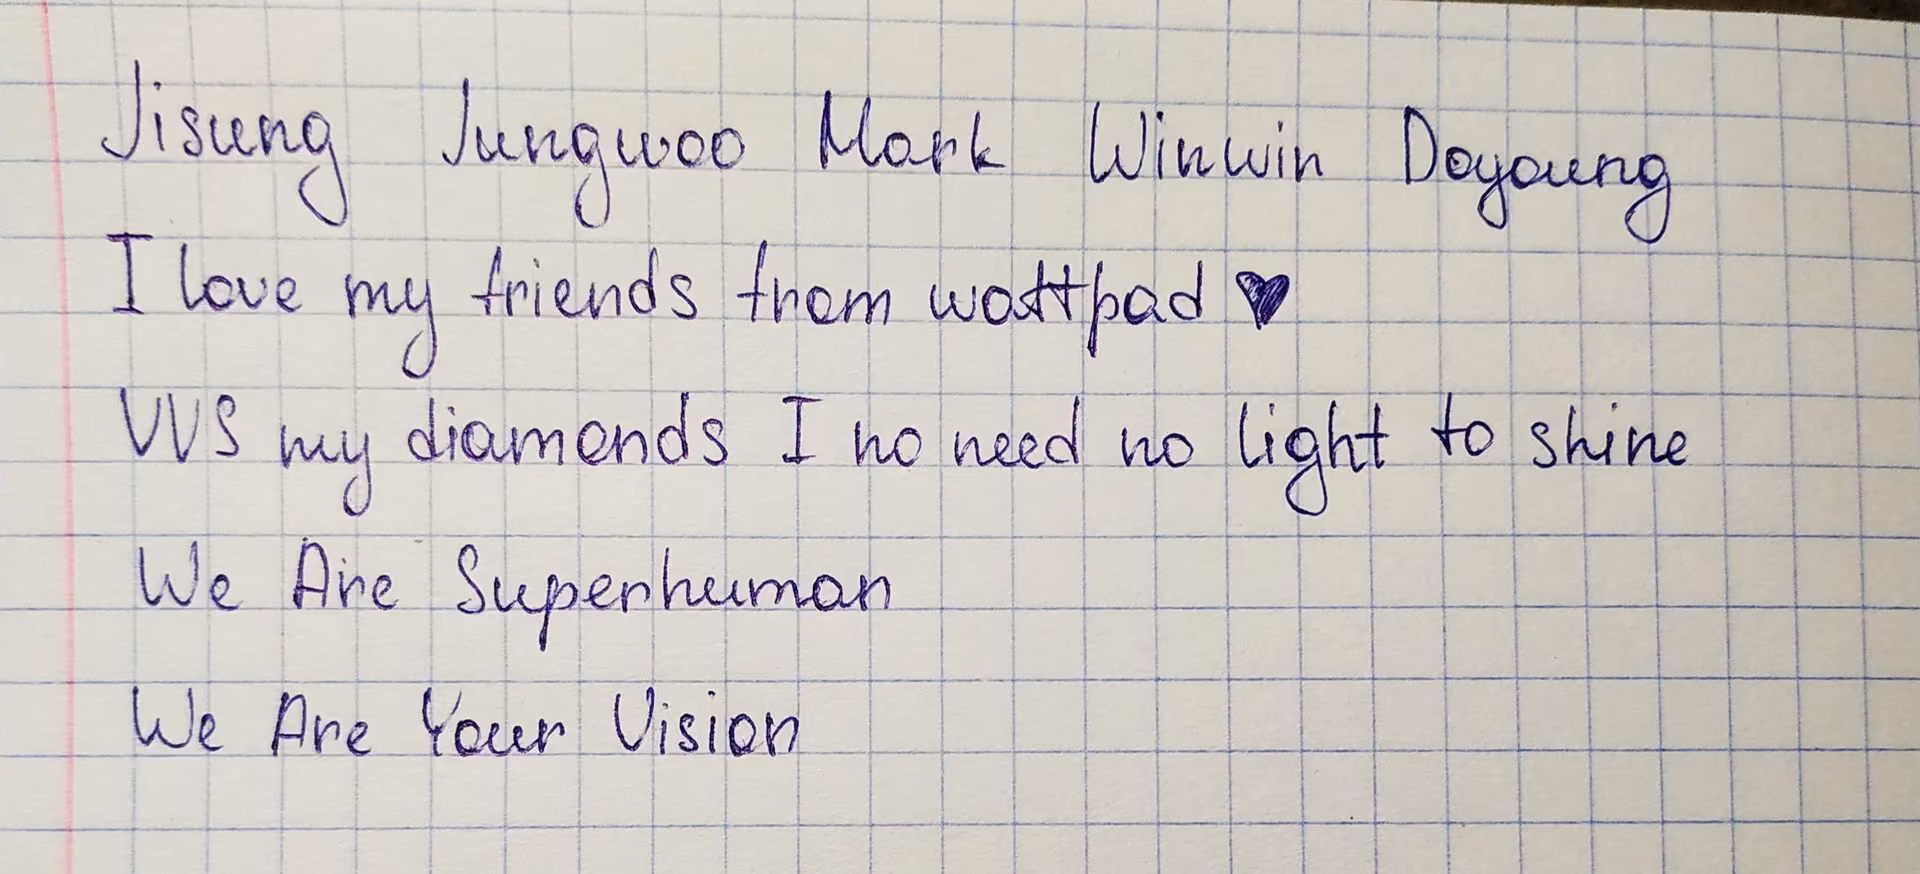 Jisung Jungwoo Mark Winwin Doyoung
I love my friends from wattpad ♥
VVS my diamonds I no need no light to shine
We Are Superhuman
We Are Your Vision